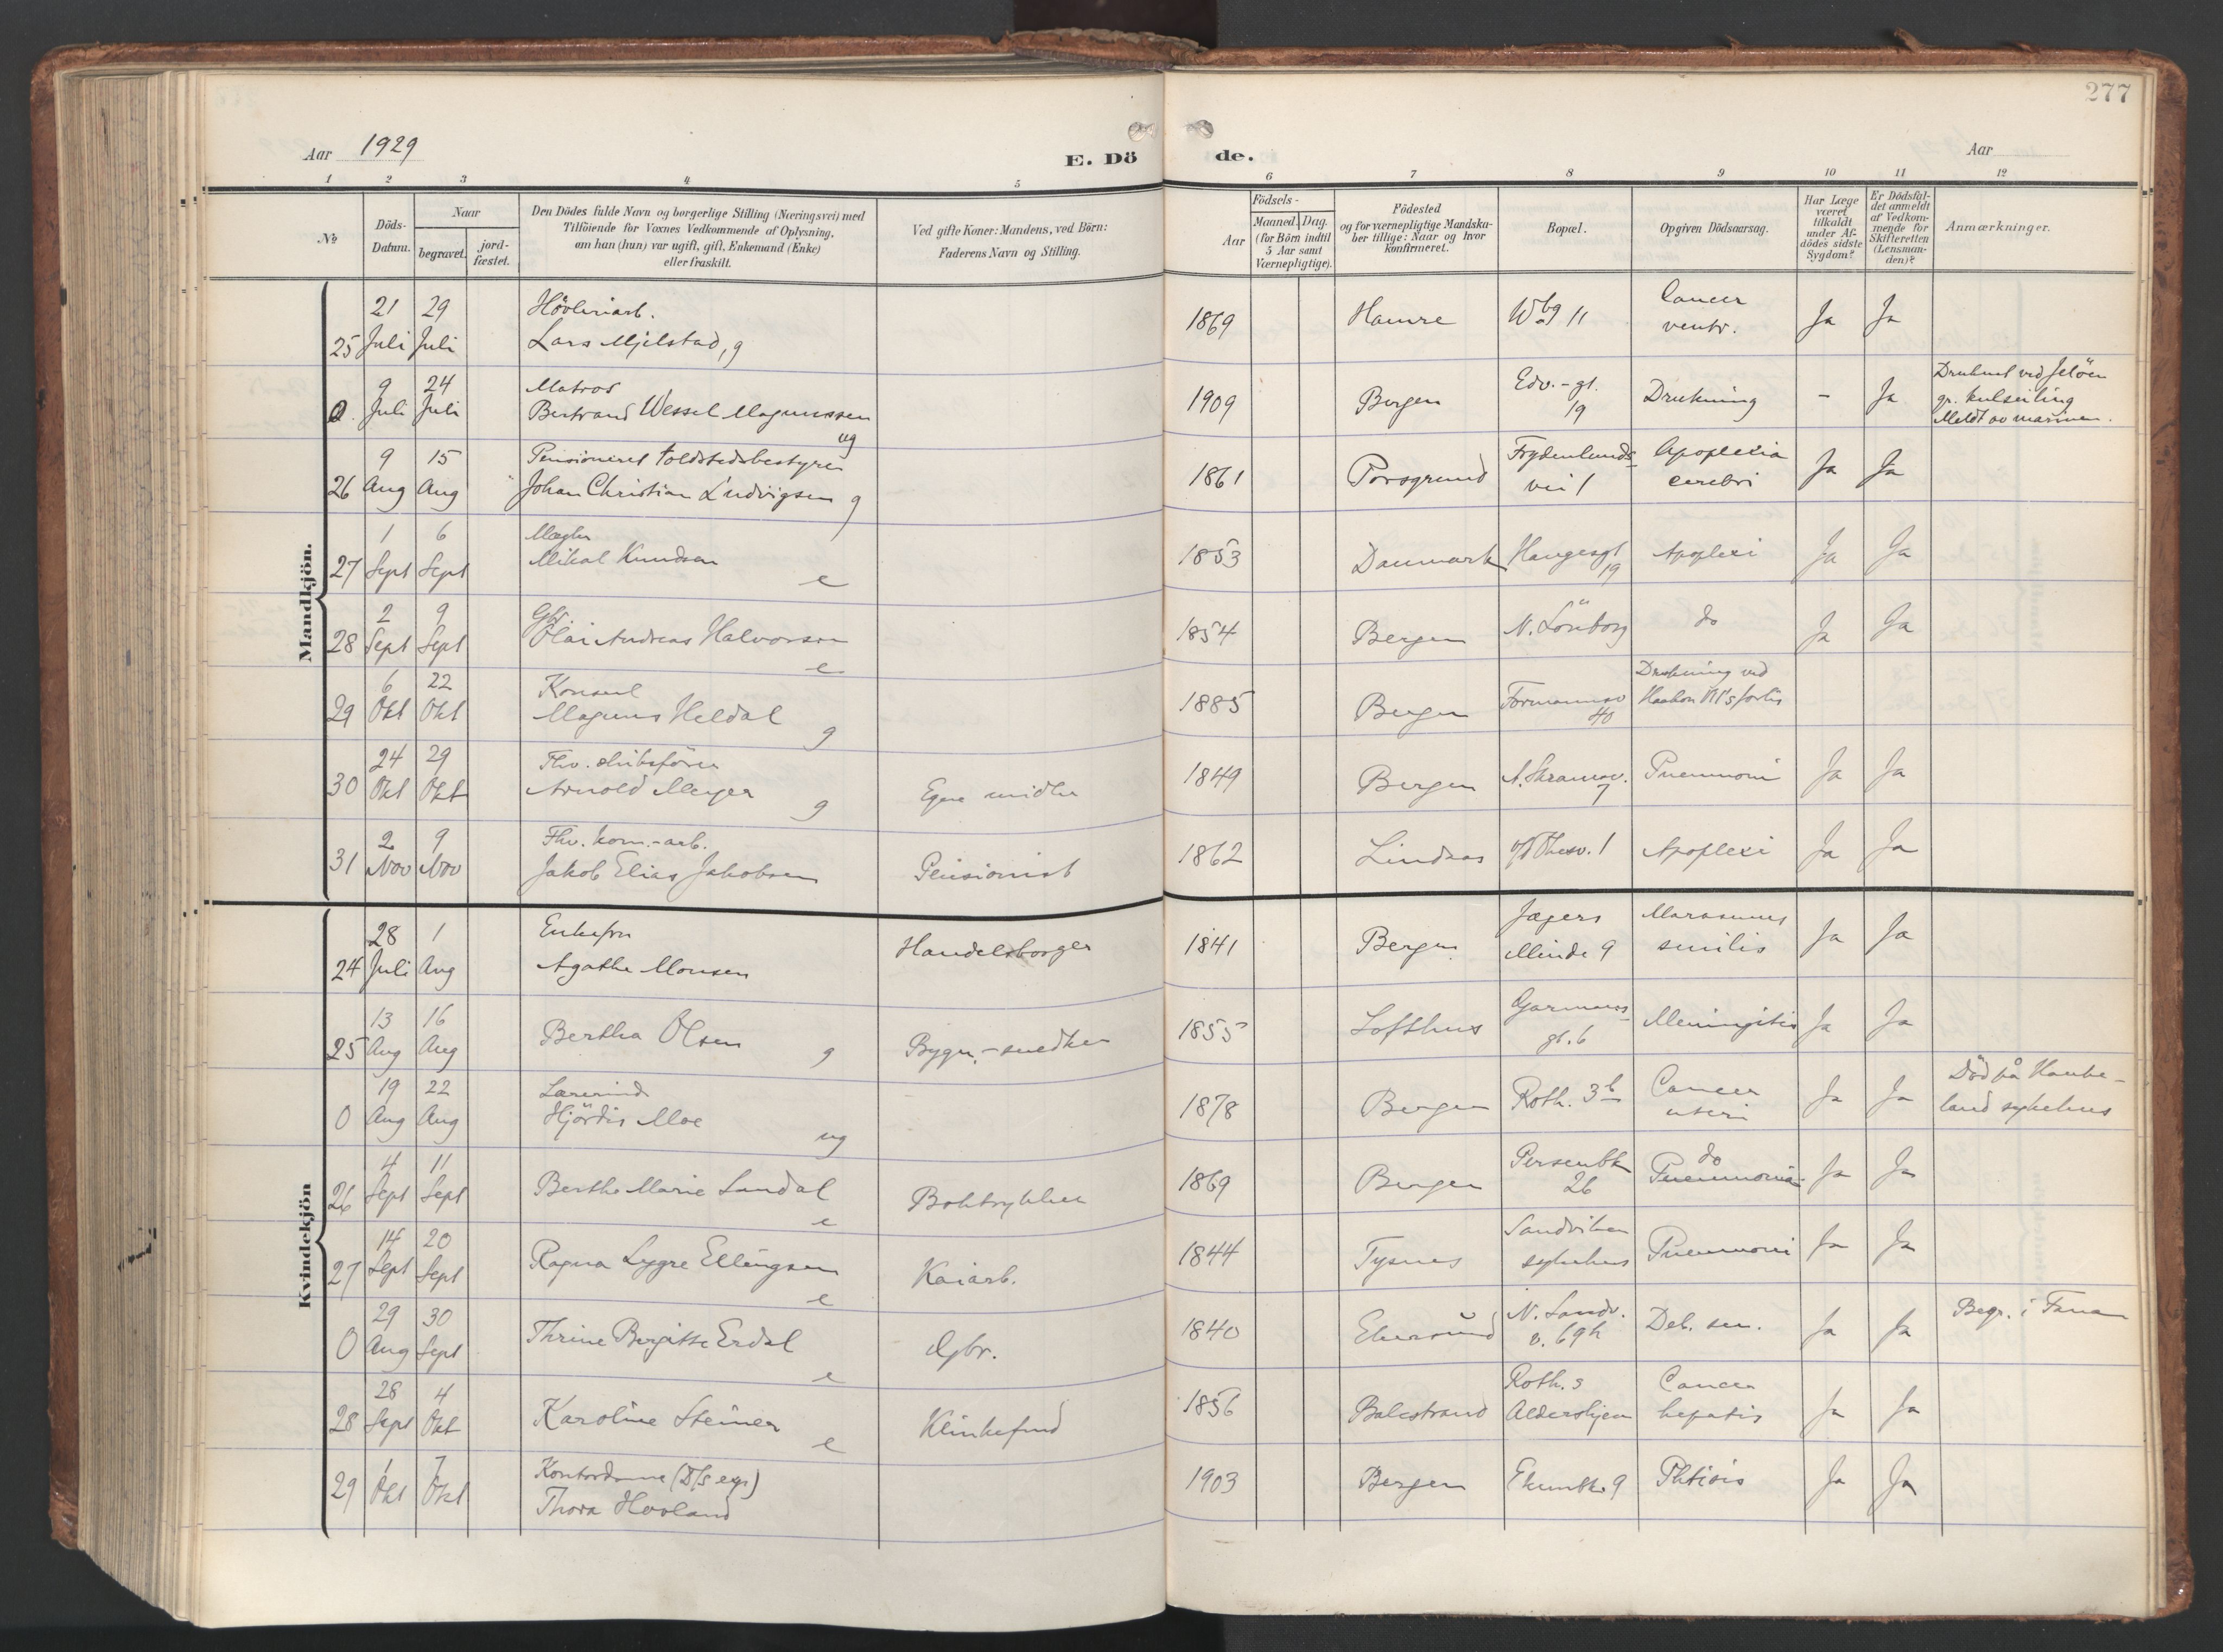 277
Aar 1929
E. Dö
de.
Aar
1 2 3 4 5 6 7 8 9 10 11 12
№
Döds-Datum.
Naar
begravet.
jord-fæstet.
Den Dödes fulde Navn og borgerlige Stilling (Næringsvei) med
Tilföiende for Voxnes Vedkommende af Oplysning,
om han (hun) var ugift, gift, Enkemand (Enke)
eller fraskilt.
Ved gifte Koner: Mandens, ved Börn:
Faderens Navn og Stilling.
Födsels-
Aar
Maaned. Dag.
(for Börn indtil
5 Aar samt
Værnepligtige).
Födested
og for værnepligtige Mandska-
ber tillige: Naar og hvor
konfirmeret.
Bopæl.
Opgiven Dödsaarsag.
Har Læge
været
tilkaldt
under Af-
dödes sidste
Sygdom?
Er Dödsfal-
det anmeldt
af Vedkom-
mende for
Skifteretten
(Lensman-
den)?
Anmærkninger.
Mandkjön.
21 29 Hövleriarb. Cancer
25 Juli Juli Lars Mjelstad, g 1869 Hamre 11 ventr. Ja Ja
9 24 Matros Edv.-gt. Druknet ved Jelöen
0. Juli Juli Bertrand Wessel Magnussen ug 1909 Bergen 19 Drukning - Ja gr. kulseiling
Meldt av marinen.
9 15 Pensioneret toldstedsbestyrer Frydenlunds- Apoplexia
26 Aug Aug Johan Christian Ludvigsen g 1861 Porsgrund vei 1 cerebri Ja Ja
1 6 Mægler
27 Sept Sept Mikal Knudsen e 1853 Danmark Haugesgt 19 Apoplexi Ja Ja
2 9
28 Sept Sept Olai Andreas Halvorsen e 1854 Bergen N. Lönborg do Ja Ja
6 22 Konsul Drukning ved
29 Okt Okt Magnus Heldal g 1885 Bergen Formannsv 40 Haakon VII's
24 29 Fhv. skibsförer
30 Okt Okt Arnold Meyer g Egne midler 1849 Bergen 7 Pneumoni Ja Ja
2 9 Fhv. kom.-arb.
31 Nov Nov Jakob Elias Jakobsen Pensionist 1862 Lindaas 1 Apoplexi Ja Ja
Kvindekjön
28 1 Enkefru Jægers Marasmus
24 Juli Aug Agathe Monsen Handelsborger 1841 Bergen Minde 9 senilis Ja Ja
13 16 Garmanns-
25 Aug Aug Bertha Olsen g Bygn.-snedker 1855 Lofthus gt. 6 Meningitis Ja Ja
19 22 Lærerinde Cancer Död på Hauke-
0 Aug Aug Hjördis Moe ug 1878 Bergen Roth. 3b uteri Ja Ja land sykehus
4 11 Persenbk do
26 Sept Sept Berthe Marie Sundal e Boktrykker 1869 Bergen 26 Pneumonia Ja Ja
14 20 Sandviken
27 Sept Sept Ragna Lygre Ellingsen e Kaiarb. 1844 Tysnes sykehus Pneumoni Ja Ja
29 30 N. Sandv.
0 Aug Sept Thrine Bergitte Erdal e Gbr. 1840 Ekersund v. 69h Deb. sen. Ja Ja Begr. i Fana
28 4 Roth. 3 Cancer
28 Sept Okt Karoline Steiner e 1856 Balestrand Aldershjem hepatis Ja Ja
1 7 Kontordame (D/S )
29 Okt Okt Thora Hovland 1903 Bergen 9 Phtisis Ja Ja